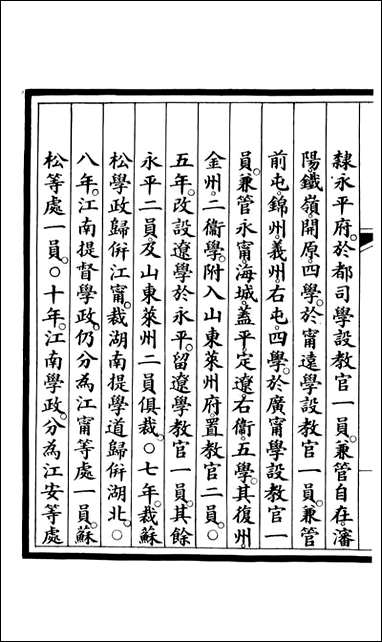 隸永平府。於都司學設教官一員。兼管自在。瀋
陽。鐵嶺。開原。四學。於甯遠學設教官一員。兼管
前屯。錦州。義州。右屯。四學。於廣甯學設教官一
員。兼管永甯。海城。蓋平。定遼右衞。五學。其復州。
金州。二衞學。附入山東萊州府。置教官二員。○
五年。改設遼學於永平。留遼學教官一員。其餘
永平二員。及山東萊州二員俱裁。○七年。裁蘇
松學政歸併江甯。裁湖南提學道歸併湖北。○
八年。江南提督學政。仍分為江甯等處一員。蘇
松等處一員。○十年。江南學政。分為江安等處